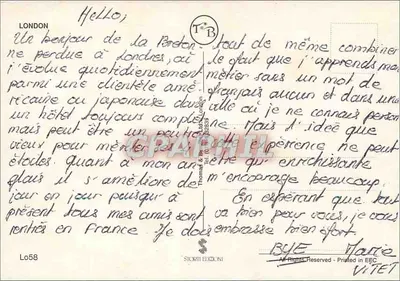 LONDON
Hello,
Un bonjour de la Breton-
ne perdue à Londres, où
j'évolue quotidiennement
parmi une clientèle amé-
ricaine ou japonaise dans
un hôtel toujours complet
mais peut être un peu trop
vieux pour mériter les
étoiles. Quant à mon an-
glais il s'améliore de
jour en jour puisqu'à
présent tous mes amis sont
rentrés en France. Je dois
tout de même combiner
le fait que j'apprends mon
métier sans un mot de
français aucun et dans une
ville où je ne connais person
ne. Mais l'idée que
l'expérience ne peut
être qu'enrichissante
m'encourage beaucoup.
En espérant que tout
va bien pour vous, je vous
embrasse bien fort.
BYE Marie
VITET
T&B
STORTI EDIZIONI
Lo58
All Rights Reserved - Printed in EEC